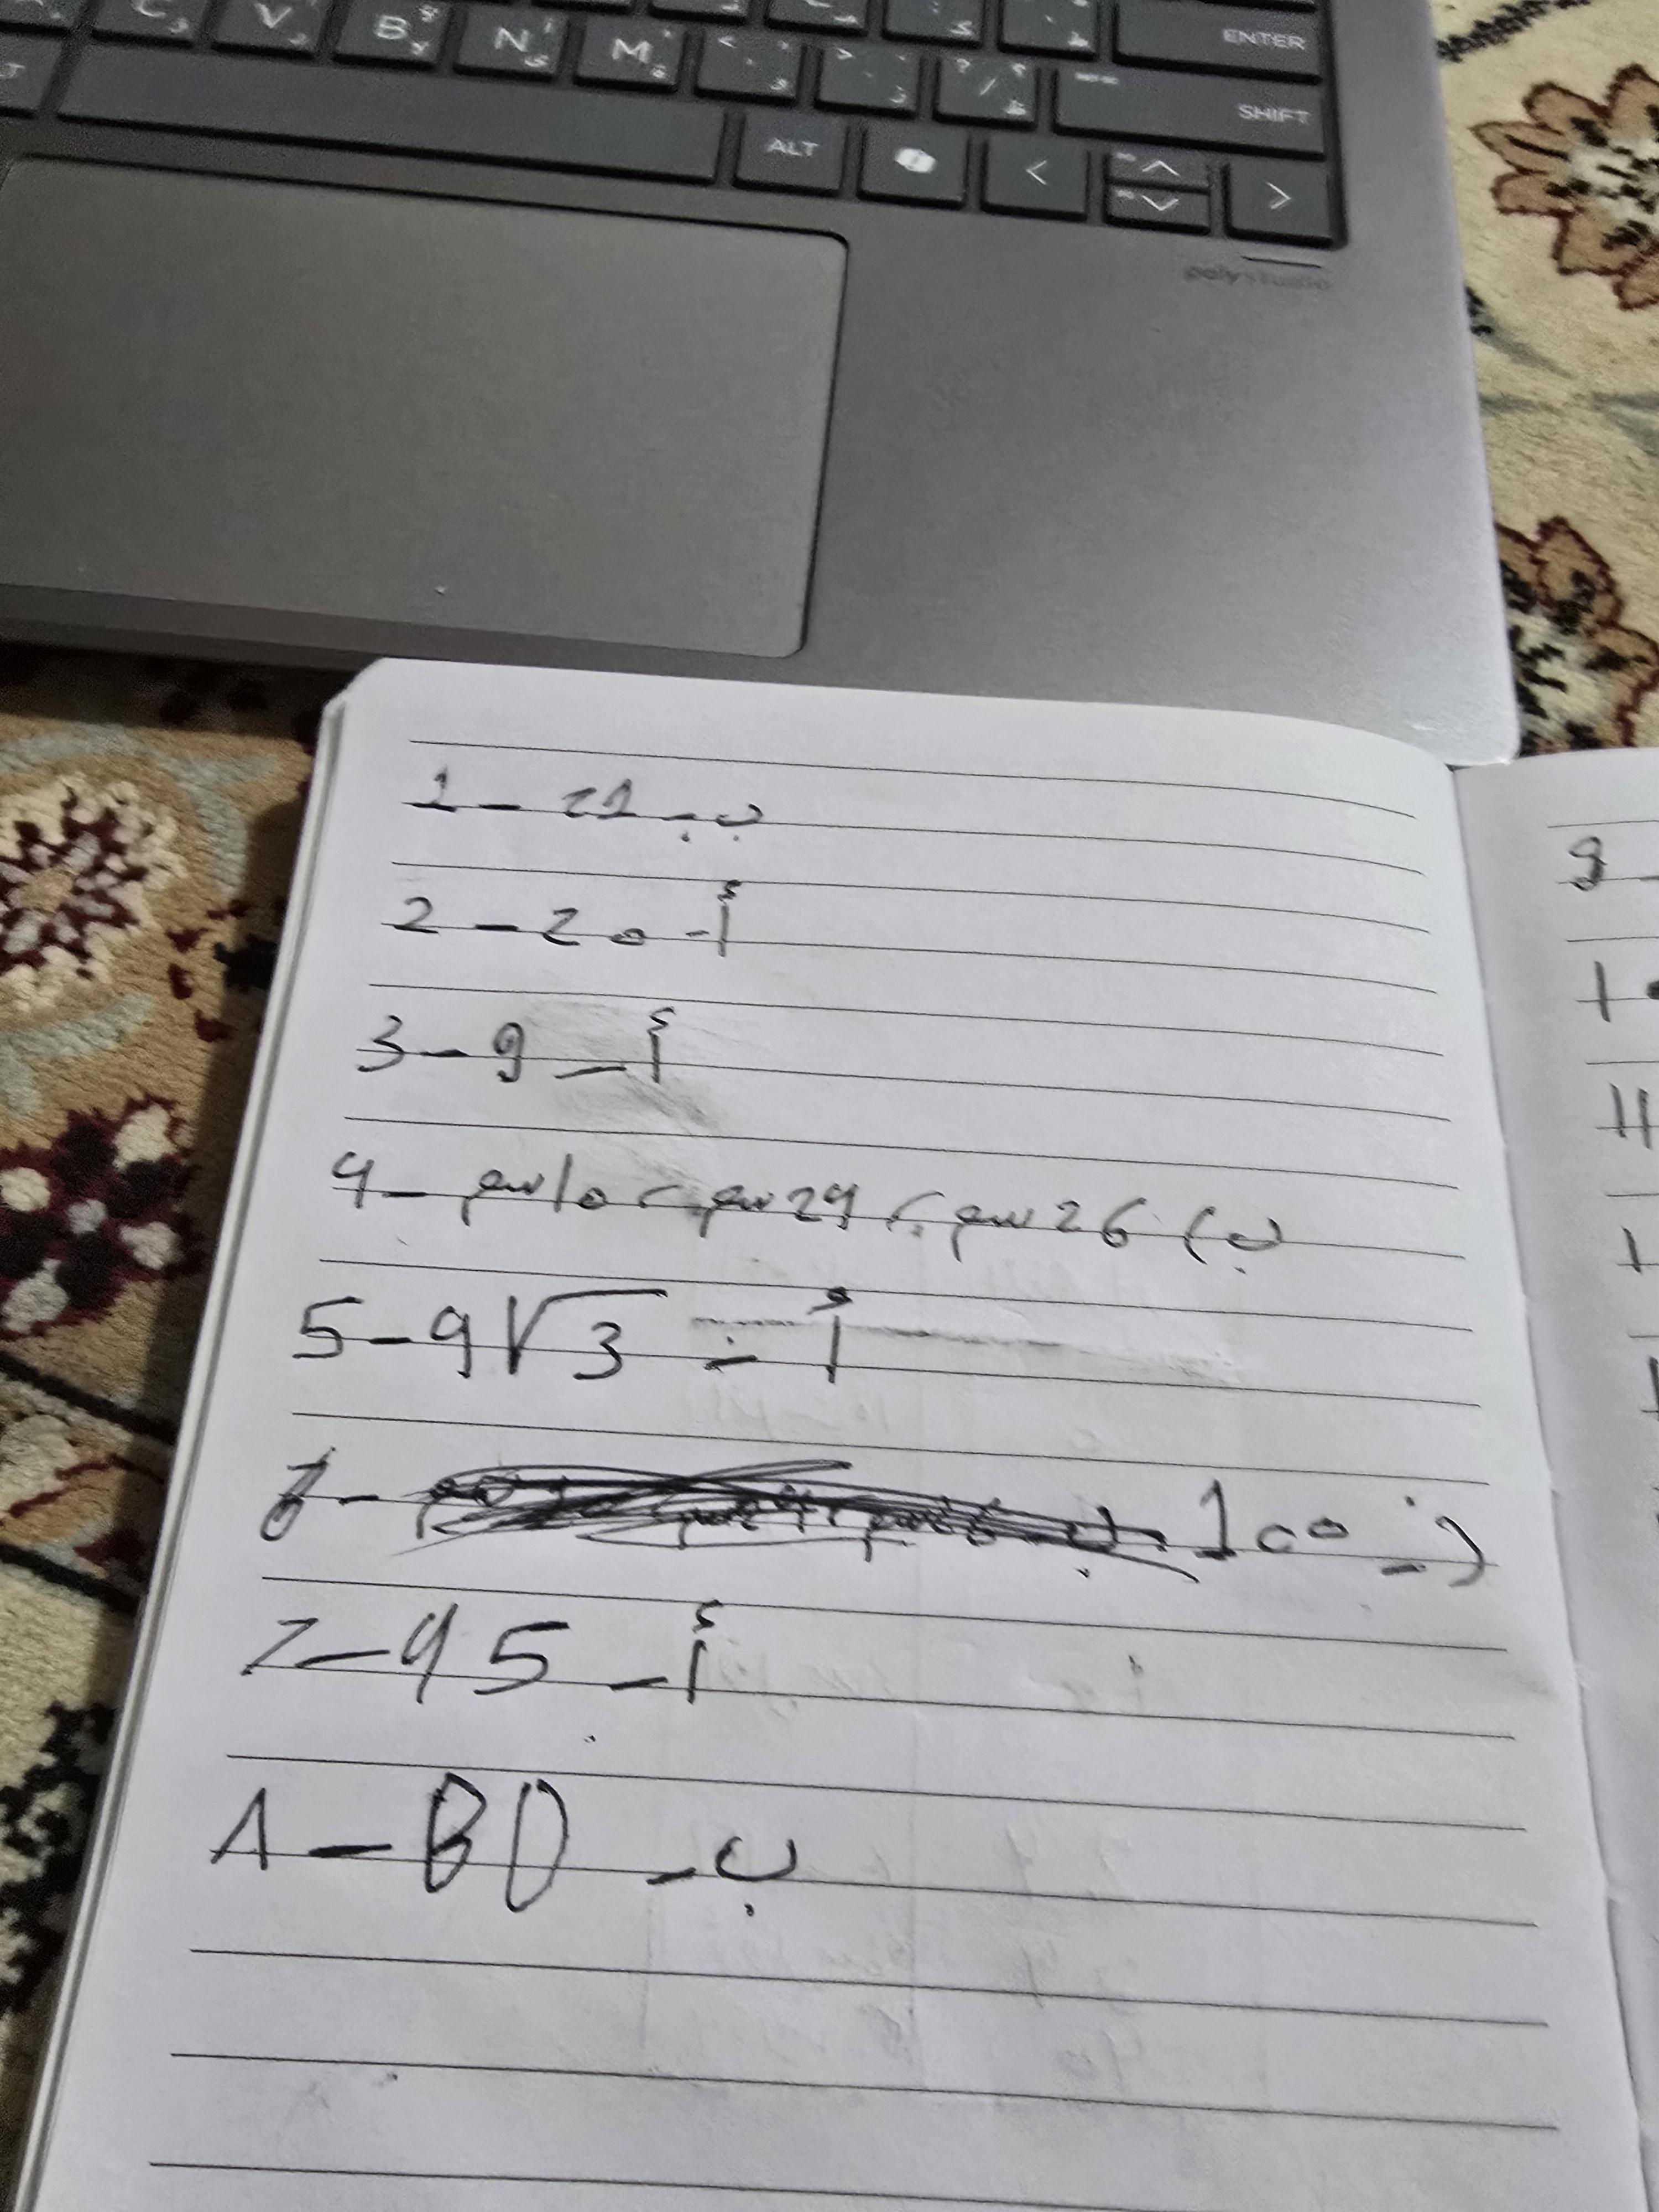 C
V
B
N
M
ENTER
SHIFT
ALT
poly studio
1 - 21 - ب
2 - 20 - أ
3 - 9 - أ
4 - 10 سم , 24 سم , 26 سم ( ب
5 - 9√3 - أ
6 - 100 - ج
7 - 45 - أ
8 - BD - ب